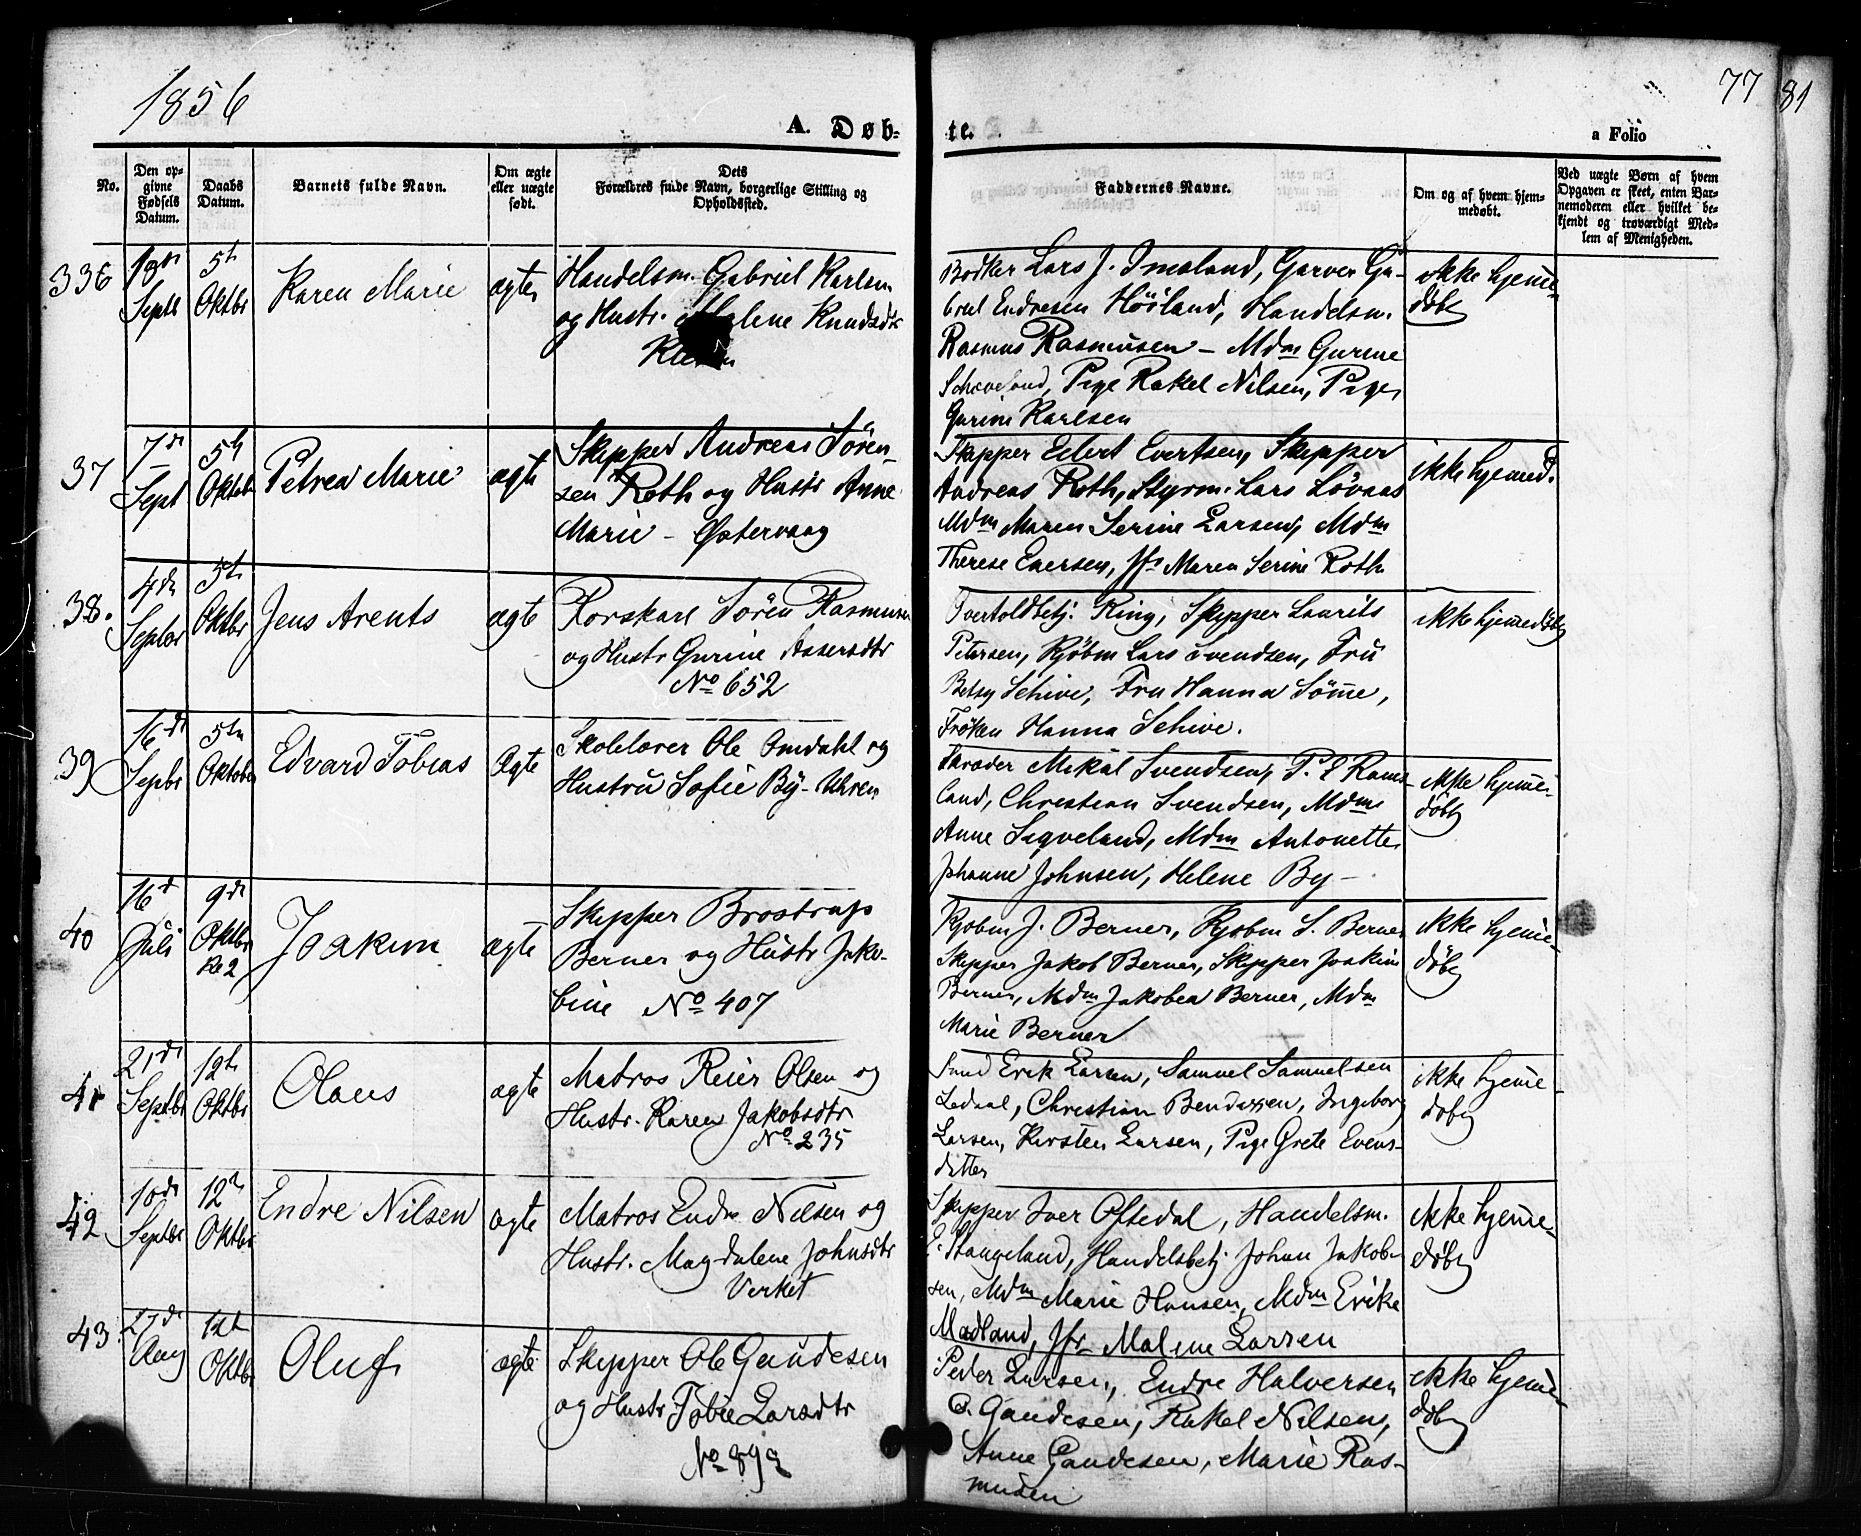 1856
77
81
A. Døb-
te.
a Folio
No.
Den op-
givne
Fødsels
Datum.
Daabs
Datum.
Barnets fulde Navn.
Om ægte
eller uægte
født.
Dets
Forældres fulde Navn, borgerlige Stilling og
Opholdssted.
Faddernes Navne.
Om og af hvem hjem-
medøbt.
Ved uægte Børn af hvem
Opgaven er skeet, enten Bar-
nemoderen eller hvilket be-
kjendt og troværdigt Med-
lem af Menigheden.
336
Septb
5te
Oktbr
Karen Marie
ægte
Handelsm. Gabriel Karlsen
og Hustr. Malene Knudsdtr
Bødker Lars J. Imsland, Garver Ga-
briel Endresen Høiland, Handelsm.
Rasmus Rasmusen - Mdm Gurine
Pige Rakel Nilsen, Pige
Gurine Karlsen
ikke hjemme-
døbt
37
7de
Sept
5te
Oktob
Petrea Marie
ægte
Skipper Andreas Søren-
sen Roth og Hustr Anne
Marie - Østervaag
Skipper Edert Evertsen, Skipper
Andreas Roth, Styrm. Lars Løvaas
Mdm Maren Serine Larsen, Mdm
Therese Jfr Maren Serine Roth
ikke hjemmed.
38.
4de
Septbr
5te
Oktbr
Jens Arents
ægte
Korskarl Søren Rasmusen
og Hustr Gurine Assersdtr
No 652
Overtoldbetj. Ring, Skipper Laurits
Petersen, Kjøbm Lars Svendsen, Fru
Betsy Schive, Fru Hanna Sømme,
Frøken Hanna Schive.
ikke hjemmedøbt
39
16de
Septbr
5te
Oktober
Edvard Tobias
Ægte
Skolelærer Ole Omdahl og
Hustru Sofie By -
Skræder Mikal Svendsen, P. E Rams-
land, Christian Svendsen, Mdm
Anne Sigveland, Mdm Antonette
Johanne Johnsen, Helene By -
ikke hjemme-
døbt
40
16de
Juli
9de
Oktbr
Kl 2
Joakim
ægte
Skipper Brostrup
Berner og Hustr Jako-
bine No 407
Kjøbm J. Berner, Kjøbm S. Berner
Skipper Jakob Berner, Skipper Joakim
Berner, Mdm Jakobea Berner, Mdm
Marie Berner
ikke hjemme-
døbt
41
21de
Septbr
12te
Oktbr
Olaus
ægte
Matros Reier Olsen og
Hustr. Karen Jakobsdtr
No 235
Erik Larsen, Samuel Samuelsen
Ledaal, Christian Bendixen, Ingeborg
Larsen, Kirsten Larsen, Pige Grete Evens-
datter
ikke hjemme-
døbt
42
10de
Septbr
12te
Oktbr
Endre Nilsen
ægte
Matros Endre Nilsen og
Hustr. Magdalene Johnsdtr
Verket
Skipper Iver Oftedal, Handelsm.
E. Stangeland, Handelsbetj Johan Jakob-
sen, Mdm Marie Hansen, Mdm Erike
Madland, Jfr Malene Larsen
ikke hjemme-
døbt
43
27de
Aug
12te
Oktbr
Oluf
ægte
Skipper Ole Gaudesen
og Hustr Tobie Larsdtr
Peder Larsen, Endre Halversen
O. Gaudesen, Rakel Nilsen,
Anne Gaudesen, Marie Ras-
musen
ikke hjemme-
døbt